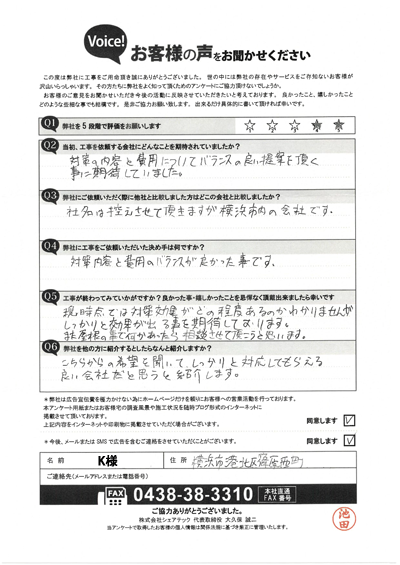 Voice!
お客様の声をお聞かせください
この度は弊社に工事をご用命頂き誠にありがとうございました。世の中には弊社の存在やサービスをご存知ないお客様が
沢山いらっしゃいます。その方たちに弊社をよく知って頂くためのアンケートにご協力頂けないでしょうか。
お客様のご意見をお聞かせいただき今後の活動に反映させていただきたいと考えております。良かったこと、嬉しかったこと
どのような些細な事でも結構です。是非ご協力お願い致します。出来るだけ具体的に書いて頂ければ幸いです。
Q1 弊社を5段階で評価をお願いします ☆ ☆ ☆ ★ ★
Q2 当初、工事を依頼する会社にどんなことを期待されていましたか?
対策の内容と費用についてバランスの良い提案を頂く
事に期待していました。
Q3 弊社にご依頼いただく際に他社と比較しました方はどこの会社と比較しましたか?
社名は控えさせて頂きますが横浜市内の会社です。
Q4 弊社に工事をご依頼いただいた決め手は何ですか?
対策内容と費用のバランスが良かった事です。
Q5 工事が終わってみていかがですか?良かった事・嬉しかったことを忌憚なく講評出来ましたら幸いです
現時点では対策効果がどの程度あるのかわかりませんが
しっかりと効果が出る事を期待しております。
又屋根の事で何かあったら相談させて頂こうと思います。
Q6 弊社を他の方に紹介するとしたらなんと紹介しますか?
こちらからの希望を聞いて、しっかりと対応してもらえる
良い会社だと思うと紹介します。
*弊社は広告宣伝費を極力かけない為にホームページだけを頼りにお客様への営業活動を行っております。
本アンケート用紙またはお客様宅の調査風景や施工状況を随時ブログ形式のインターネットに
掲載させて頂いております。
上記内容をインターネットや印刷物に掲載させていただく場合がございます。
同意します ☑
*今後、メールまたは SMS で広告を含むご連絡をさせていただくことがございます。
同意します ☑
名前 K様 住所 横浜市港北区篠原西町
ご連絡先(メールアドレスまたは電話番号)
FAX 0438-38-3310 本社直通 FAX番号
ご協力ありがとうございました。
株式会社シェアテック 代表取締役 大久保 誠二
当アンケートで取得したお客様の個人情報は関係法規に基づき厳正に管理いたします。
池田